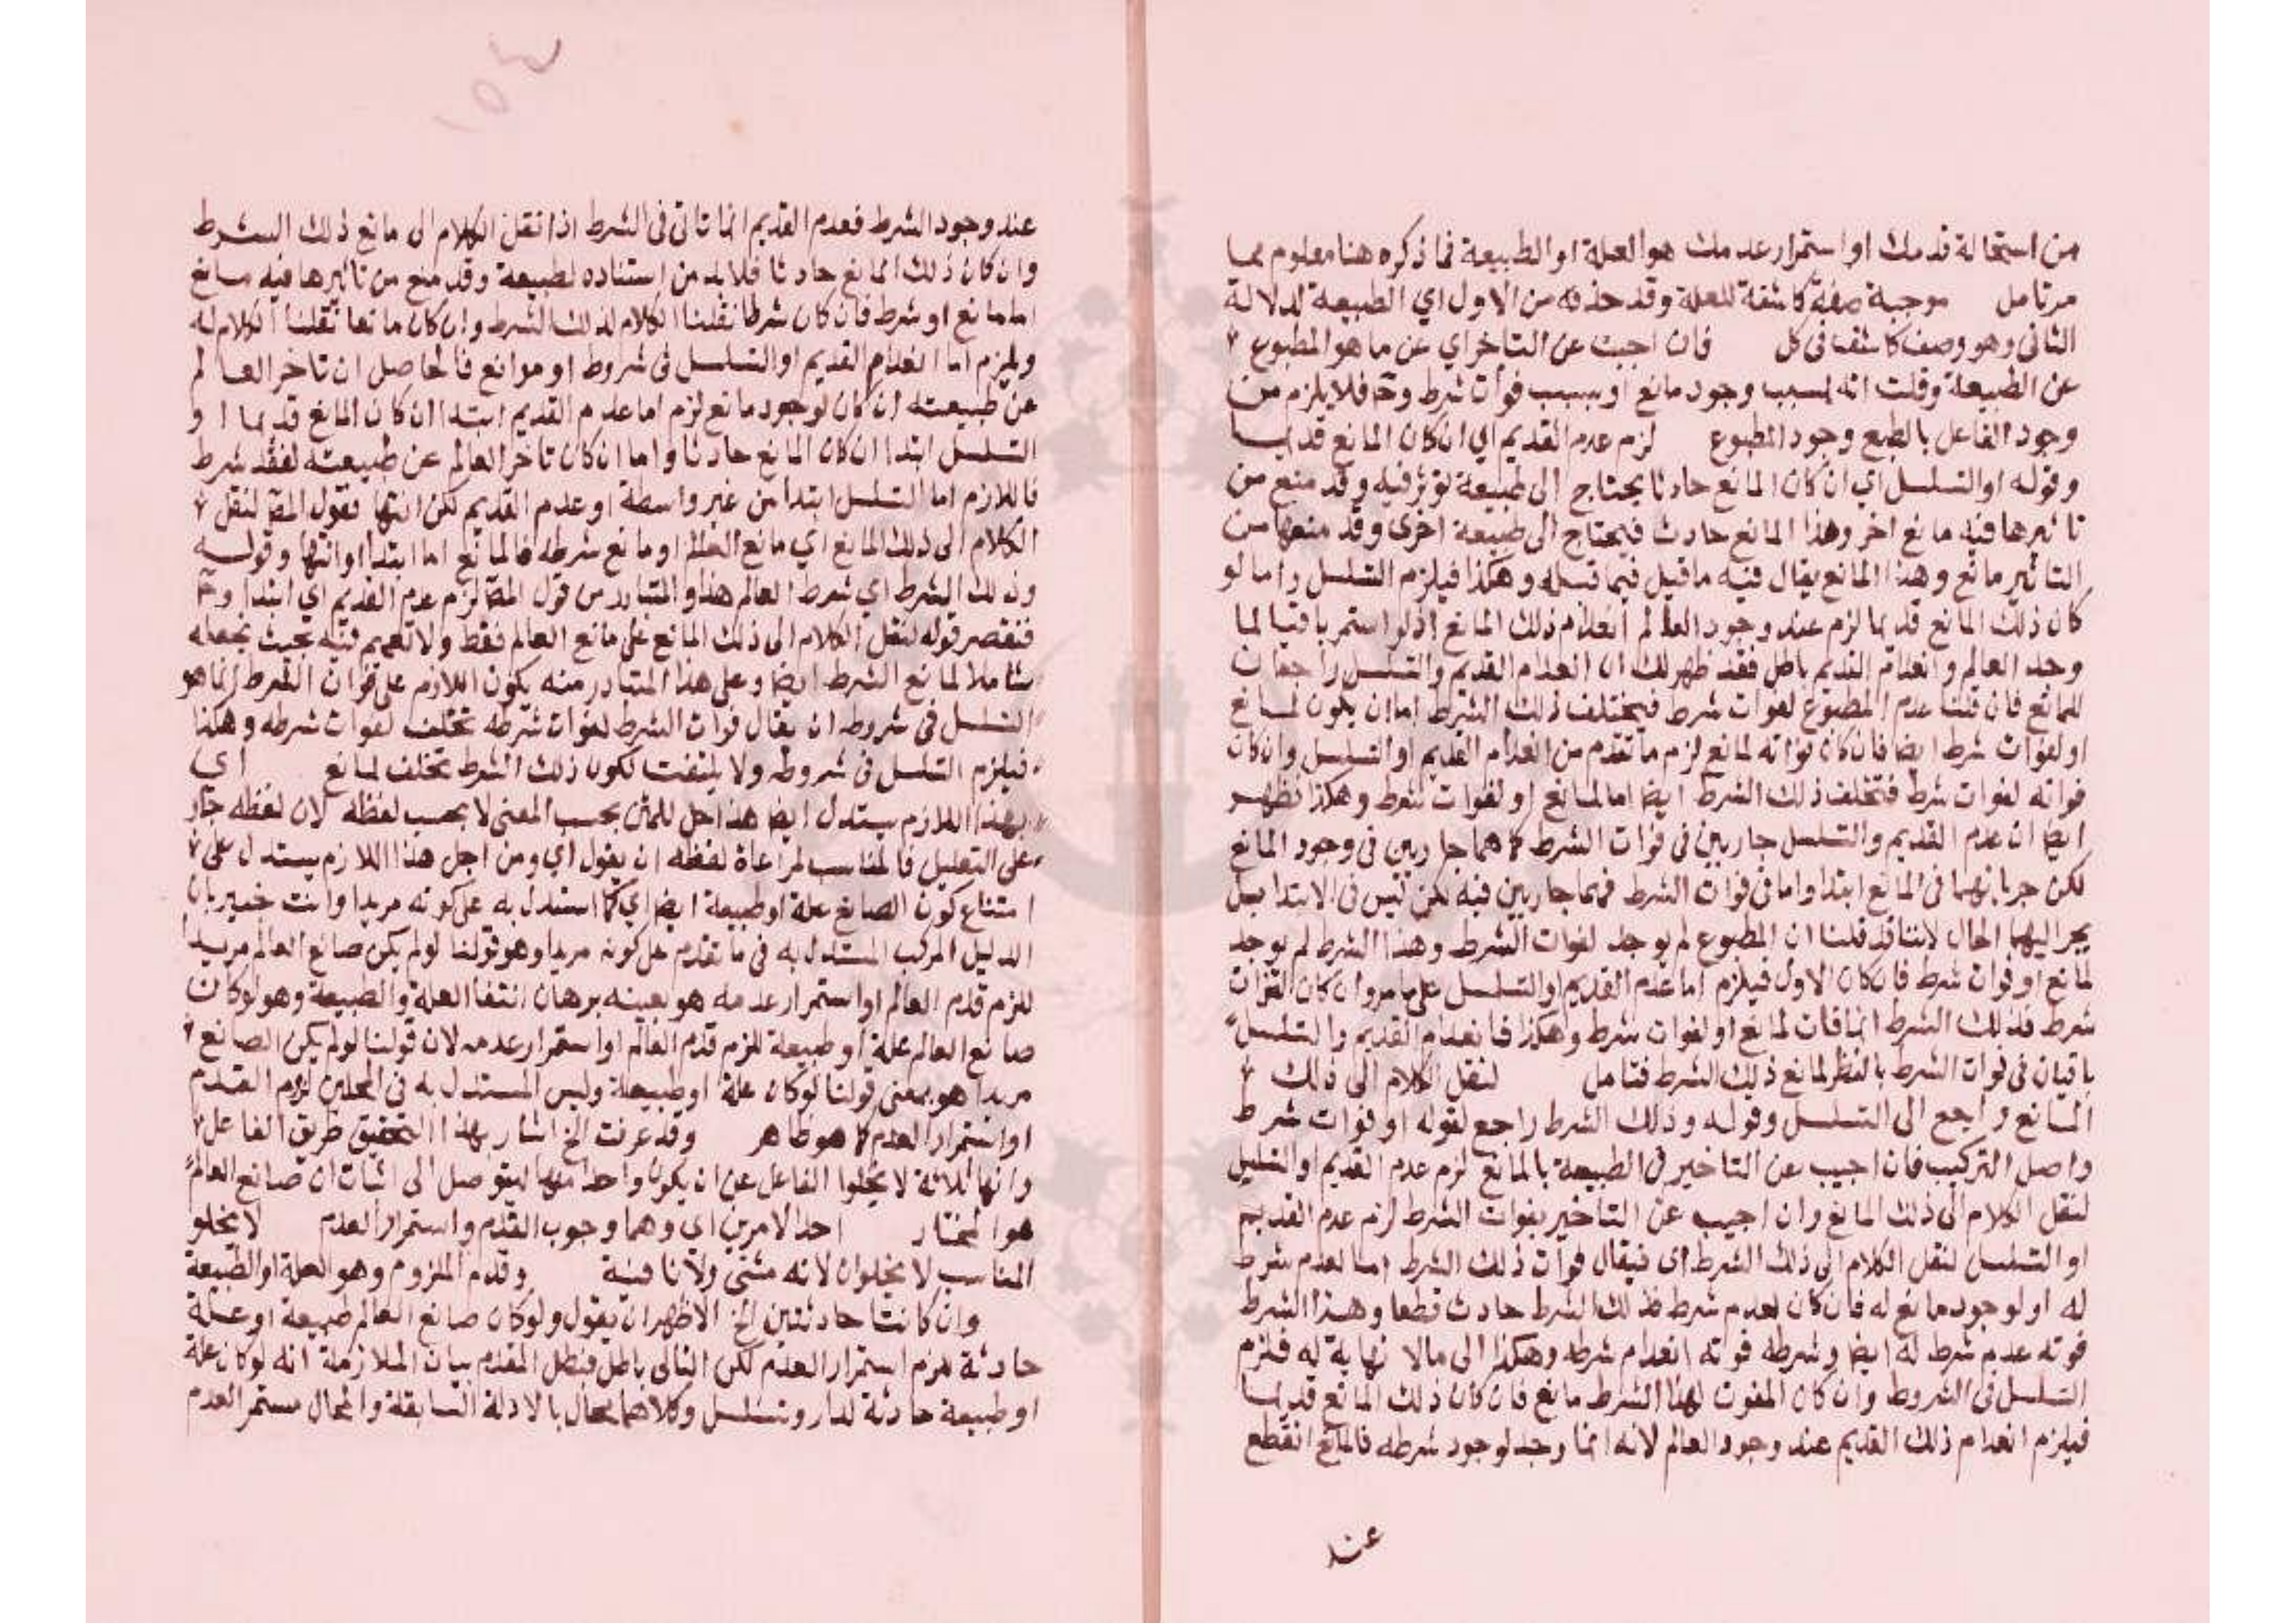 من استحالة قدمك او استمرار عدمك هو العلة او الطبيعة فما ذكره هنا معلوم مما
مر تامل موجبة صفة كاشفة للعلة وقد حذفه من الاول اي الطبيعة لدلالة
الثاني وهو وصف كاشف في كل فان اجبت عن التاخر اي عن ما هو المطبوع
عن الطبيعة وقلت انه لسبب وجود مانع او بسبب فوات شرط وح فلا يلزم من
وجود الفاعل بالطبع وجود المطبوع لزم عدم القديم اي ان كان المانع قديما
وقوله او التسلسل اي ان كان المانع حادثا يحتاج الى طبيعة تؤثر فيه وقد منع من
تاثيرها فيه مانع اخر وهذا المانع حادث فيحتاج الى طبيعة اخرى وقد منعها من
التاثير مانع وهذا المانع يقال فيه ما قيل فيما قبله وهكذا فيلزم التسلسل واما لو
كان ذلك المانع قديما لزم عند وجود العالم انعدام ذلك المانع اذ لو استمر باقيا لما
وجد العالم وانعدام القديم باطل فقد ظهر لك ان انعدام القديم والتسلسل راجعان
للمانع فان قلنا عدم المطبوع لفوات شرط فيختلف ذلك الشرط اما ان يكون لمانع
او لفوات شرط ايضا فان كان فواته لمانع لزم ما تقدم من انعدام القديم او التسلسل وان كان
فواته لفوات شرط فتخلف ذلك الشرط ايضا اما لمانع او لفوات شرط وهكذا فظهر
ايضا ان عدم القديم والتسلسل جاريين في فوات الشرط كما هما جاريين في وجود المانع
لكن جريانهما في المانع ابتدا واما في فوات الشرط فهما جاريين فيه لكن ليس في الابتدا بل
يجر اليها الحال لاننا قد قلنا ان المطبوع لم يوجد لفوات الشرط وهذا الشرط لم يوجد
لمانع او فوات شرط فان كان الاول فيلزم اما عدم القديم او التسلسل على ما مر وان كان لفوات
شرط فذلك الشرط انما فات لمانع او لفوات شرط وهكذا فانعدام القديم والتسلسل
باقيان في فوات الشرط بالنظر لمانع ذلك الشرط فتامل لنقل الكلام الى ذلك
المانع راجع الى التسلسل وقوله وذلك الشرط راجع لقوله او فوات شرط
واصل التركيب فان اجيب عن التاخير في الطبيعة بالمانع لزم عدم القديم او التسلسل
لنقل الكلام الى ذلك المانع وان اجيب عن التاخير بفوات الشرط لزم عدم القديم
او التسلسل لنقل الكلام الى ذلك الشرط اي فيقال فوات ذلك الشرط اما لعدم شرط
له او لوجود مانع له فان كان لعدم شرط فذلك الشرط حادث قطعا وهذا الشرط
فوته عدم شرط له ايضا وشرطه فوته انعدام شرطه وهكذا الى مالا نهاية له فلزم
التسلسل في الشروط وان كان المفوت لهذا الشرط مانع فان كان ذلك المانع قديما
فيلزم انعدام ذلك القديم عند وجود العالم لانه انما وجد لوجود شرطه فالمانع انقطع
عند
عند وجود الشرط فعدم القديم انما تاتى في الشرط اذا نقلنا الكلام الى مانع ذلك الشرط
وان كان ذلك المانع حادثا فلا بد من استناده لطبيعة وقد منع من تاثيرها فيه مانع
اما مانع او شرط فان كان شرطا نقلنا الكلام لذلك الشرط وان كان مانعا نقلنا الكلام له
ويلزم اما انعدام القديم او التسلسل في شروط او موانع فالحاصل ان تاخر العالم
عن طبيعته ان كان لوجود مانع لزم اما عدم القديم ابتدا ان كان المانع قديما او
التسلسل ابتدا ان كان المانع حادثا واما ان كان تاخر العالم عن طبيعته لفقد شرط
فاللازم اما التسلسل ابتدا من غير واسطة او عدم القديم لكن انتها فقول المص لنقل
الكلام الى ذلك المانع اي مانع العالم او مانع شرطه فالمانع اما ابتدا او انتها وقوله
وذلك الشرط اي شرط العالم هذا والمتبادر من قول المص لزم عدم القديم اي ابتدا وح
فنقصر قوله لنقل الكلام الى ذلك المانع على مانع العالم فقط ولا تعميم فيه بحيث نجعله
شاملا لمانع الشرط ايضا وعلى هذا المتبادر منه يكون اللازم على فوات الشرط انما هو
التسلسل في شروطه ان يقال فوات الشرط لفوات شرطه تخلف لفوات شرطه وهكذا
فيلزم التسلسل في شروطه ولا يلتفت لكون ذلك الشرط تخلف لمانع اي
بهذا اللازم يستدل ايضا هذا حل للمتن بحسب المعنى لا بحسب لفظه لان لفظه جار
على التعليل فالمناسب لمراعاة لفظه ان يقول اي ومن اجل هذا اللازم يستدل على
امتناع كون الصانع علة او طبيعة ايضا اي كما استدل به على كونه مريدا وانت خبير بان
الدليل المركب المستدل به في ما تقدم على كونه مريدا وهو قولنا لو لم يكن صانع العالم مريدا
للزم قدم العالم او استمرار عدمه هو بعينه برهان انتفا العلة والطبيعة وهو لو كان
صانع العالم علة او طبيعة للزم قدم العالم او استمرار عدمه لان قولنا لو لم يكن الصانع
مريدا هو بمعنى قولنا لو كان علة او طبيعة وليس المستدل به في المحلين لزوم القدم
او استمرار العدم كما هو ظاهر وقد عرفت الخ اشار بهذا التحقيق طريق الفاعل
وانها ثلاثة لا يخلوا الفاعل عن ان يكون واحدا منها ليتوصل الى اثبات ان صانع العالم
هو المختار احد الامرين اي وهما وجوب القدم واستمرار العدم لا يخلو
المناسب لا يخلوان لانه مثنى ولا نافية وقدم الملزوم وهو العلة او الطبيعة
وان كانتا حادثتين الخ الاظهر ان يقول ولو كان صانع العالم طبيعة او علة
حادثة لزم استمرار العدم لكن التالي باطل فبطل المقدم بيان الملازمة انه لو كان علة
او طبيعة حادثة لدار وتسلسل وكلاهما محال بالادلة السابقة والمحال مستمر العدم